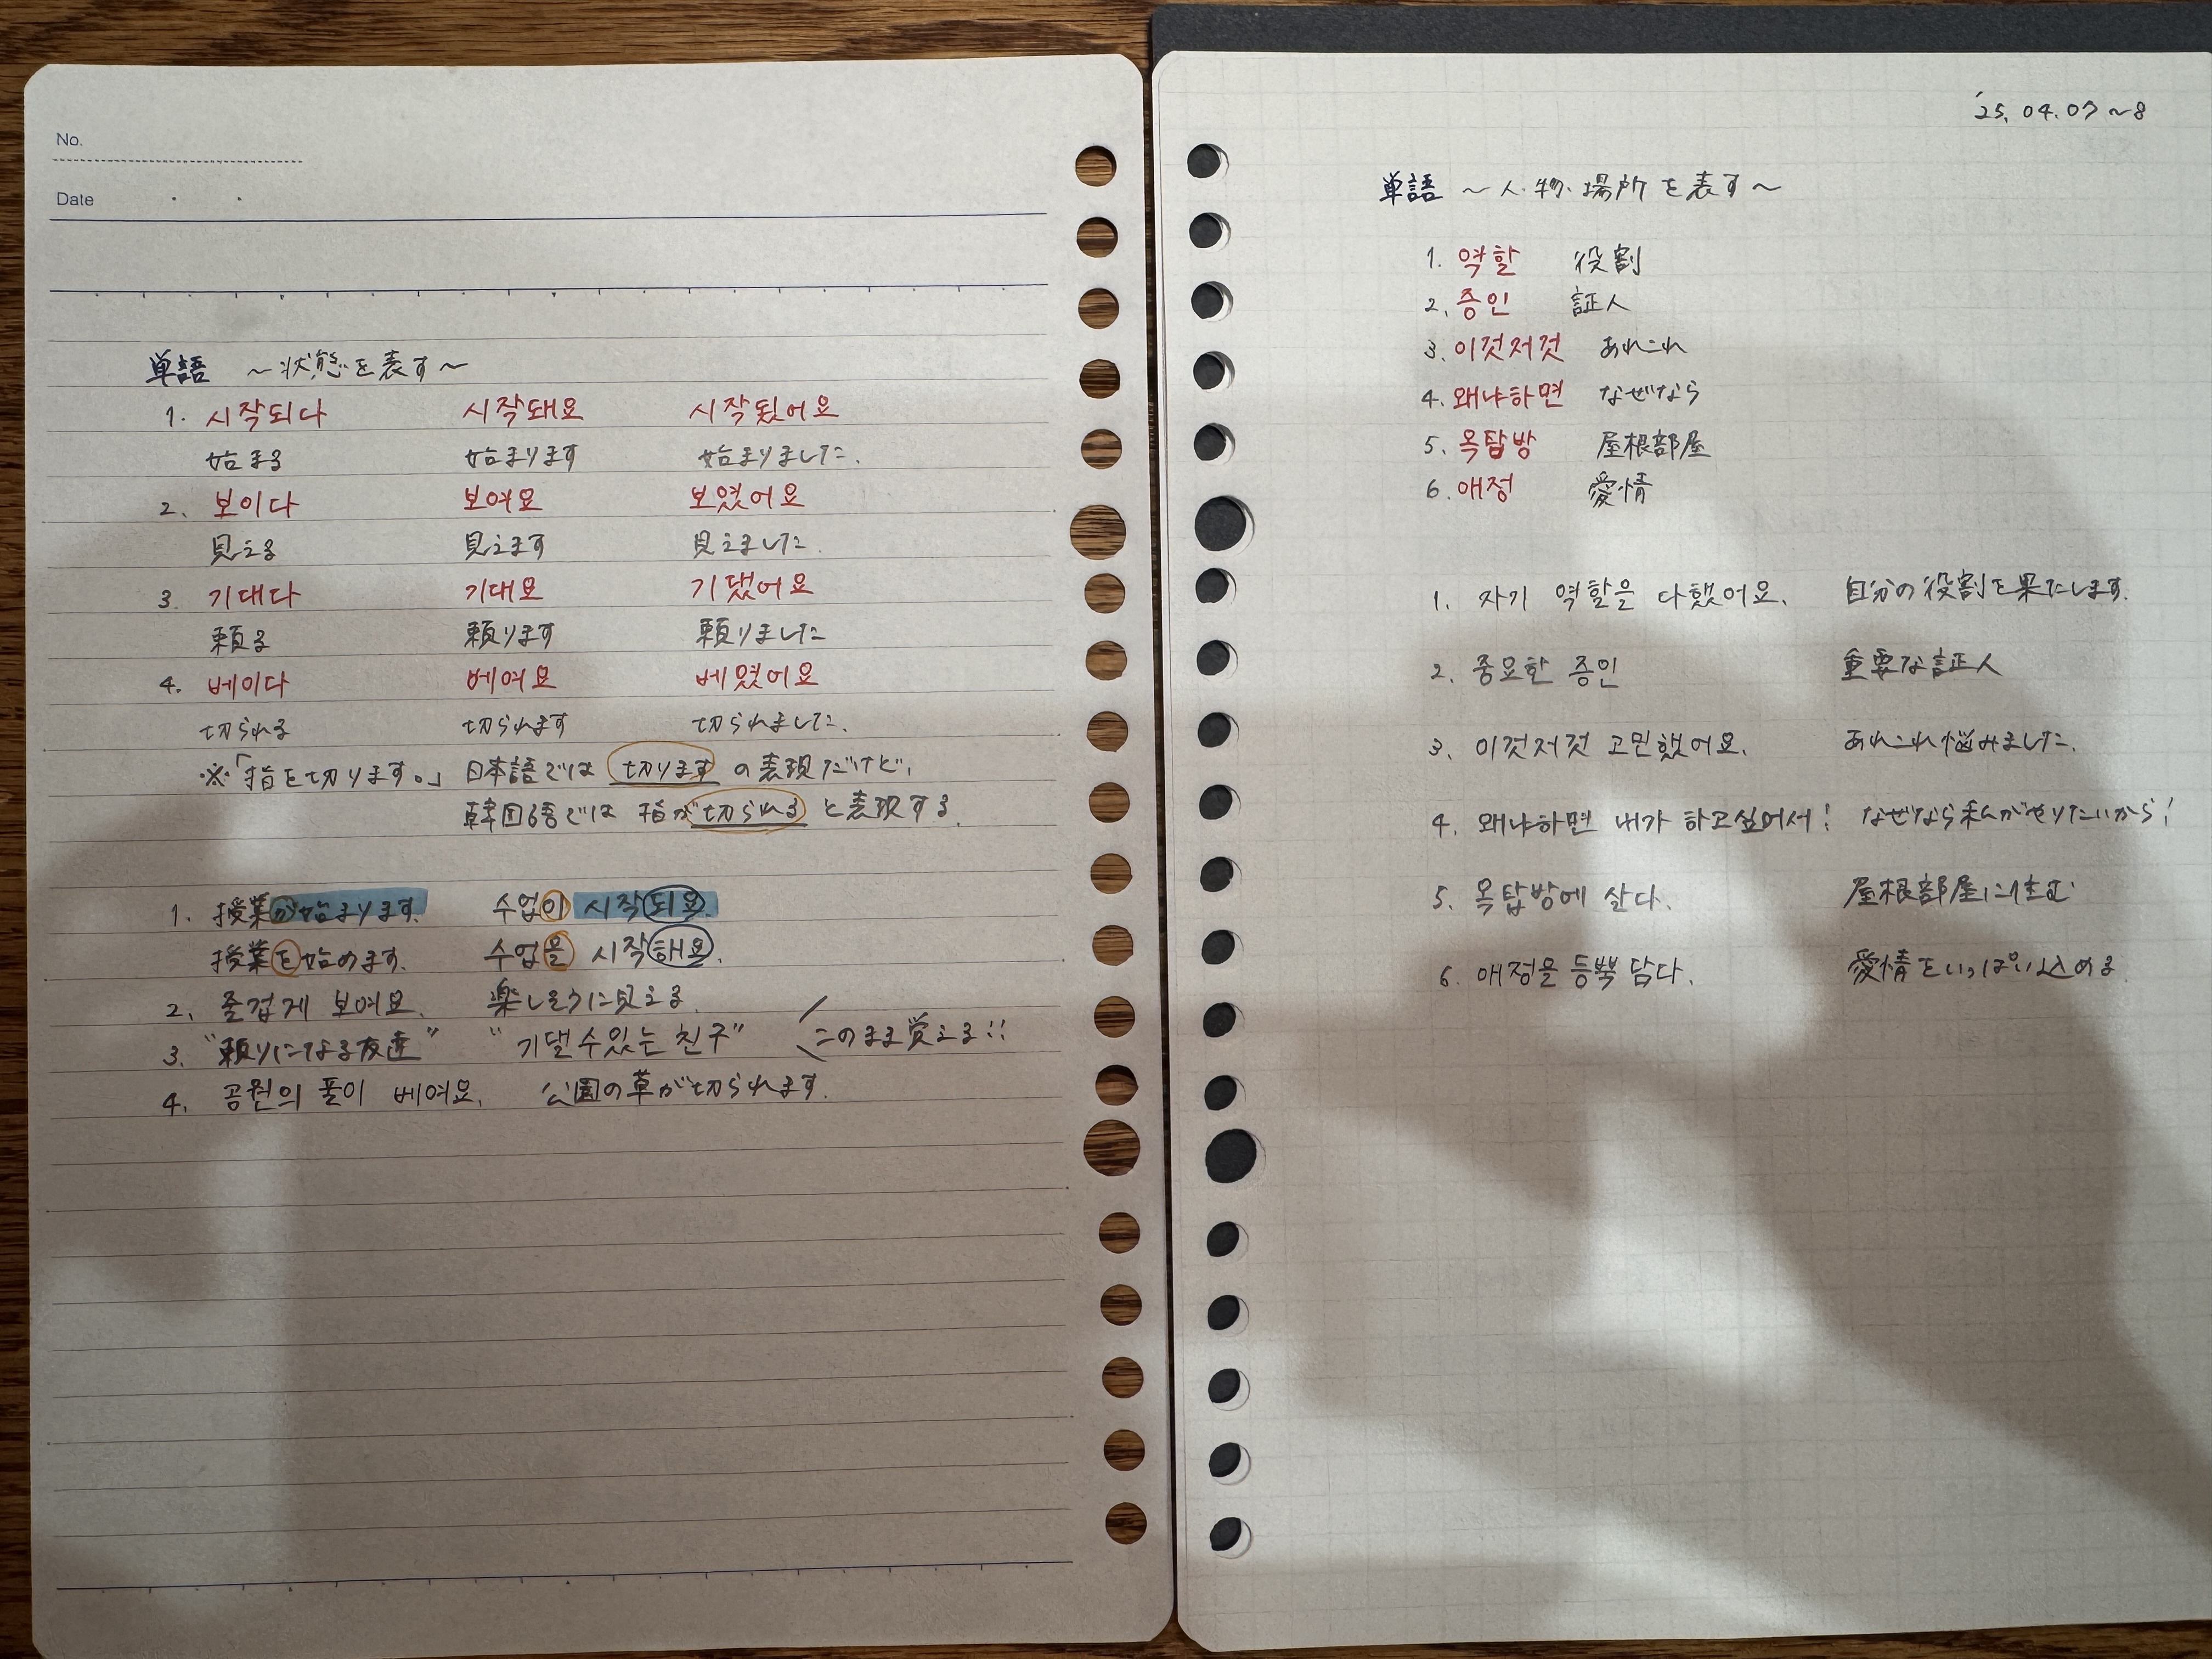 No.
Date
単語 〜状態を表す〜
1. 시작되다 시작돼요 시작됬어요
始まる 始まります 始まりました.
2. 보이다 보여요 보였어요
見える 見えます 見えました.
3. 기대다 기대요 기댔어요
頼る 頼ります 頼りました
4. 베이다 베여요 베였어요
切られる 切られます 切られました.
※「指を切ります。」 日本語では 切ります の表現だけど,
韓国語では 指が切られる と表現する.
1. 授業が始まります. 수업이 시작되요.
授業を始めます. 수업을 시작해요.
2. 즐겁게 보여요. 楽しそうに見える.
3. "頼りになる友達" "기댈수있는 친구" このまま覚える!!
4. 공원의 풀이 베여요. 公園の草が切られます.
'25. 04. 07 〜8
単語 〜人・物・場所を表す〜
1. 역할 役割
2. 증인 証人
3. 이것저것 あれこれ
4. 왜냐하면 なぜなら
5. 옥탑방 屋根部屋
6. 애정 愛情
1. 자기 역할을 다했어요. 自分の役割を果たします.
2. 중요한 증인 重要な証人
3. 이것저것 고민했어요. あれこれ悩みました.
4. 왜냐하면 내가 하고싶어서! なぜなら私がやりたいから!
5. 옥탑방에 살다. 屋根部屋に住む
6. 애정을 듬뿍 담다. 愛情をいっぱい込める